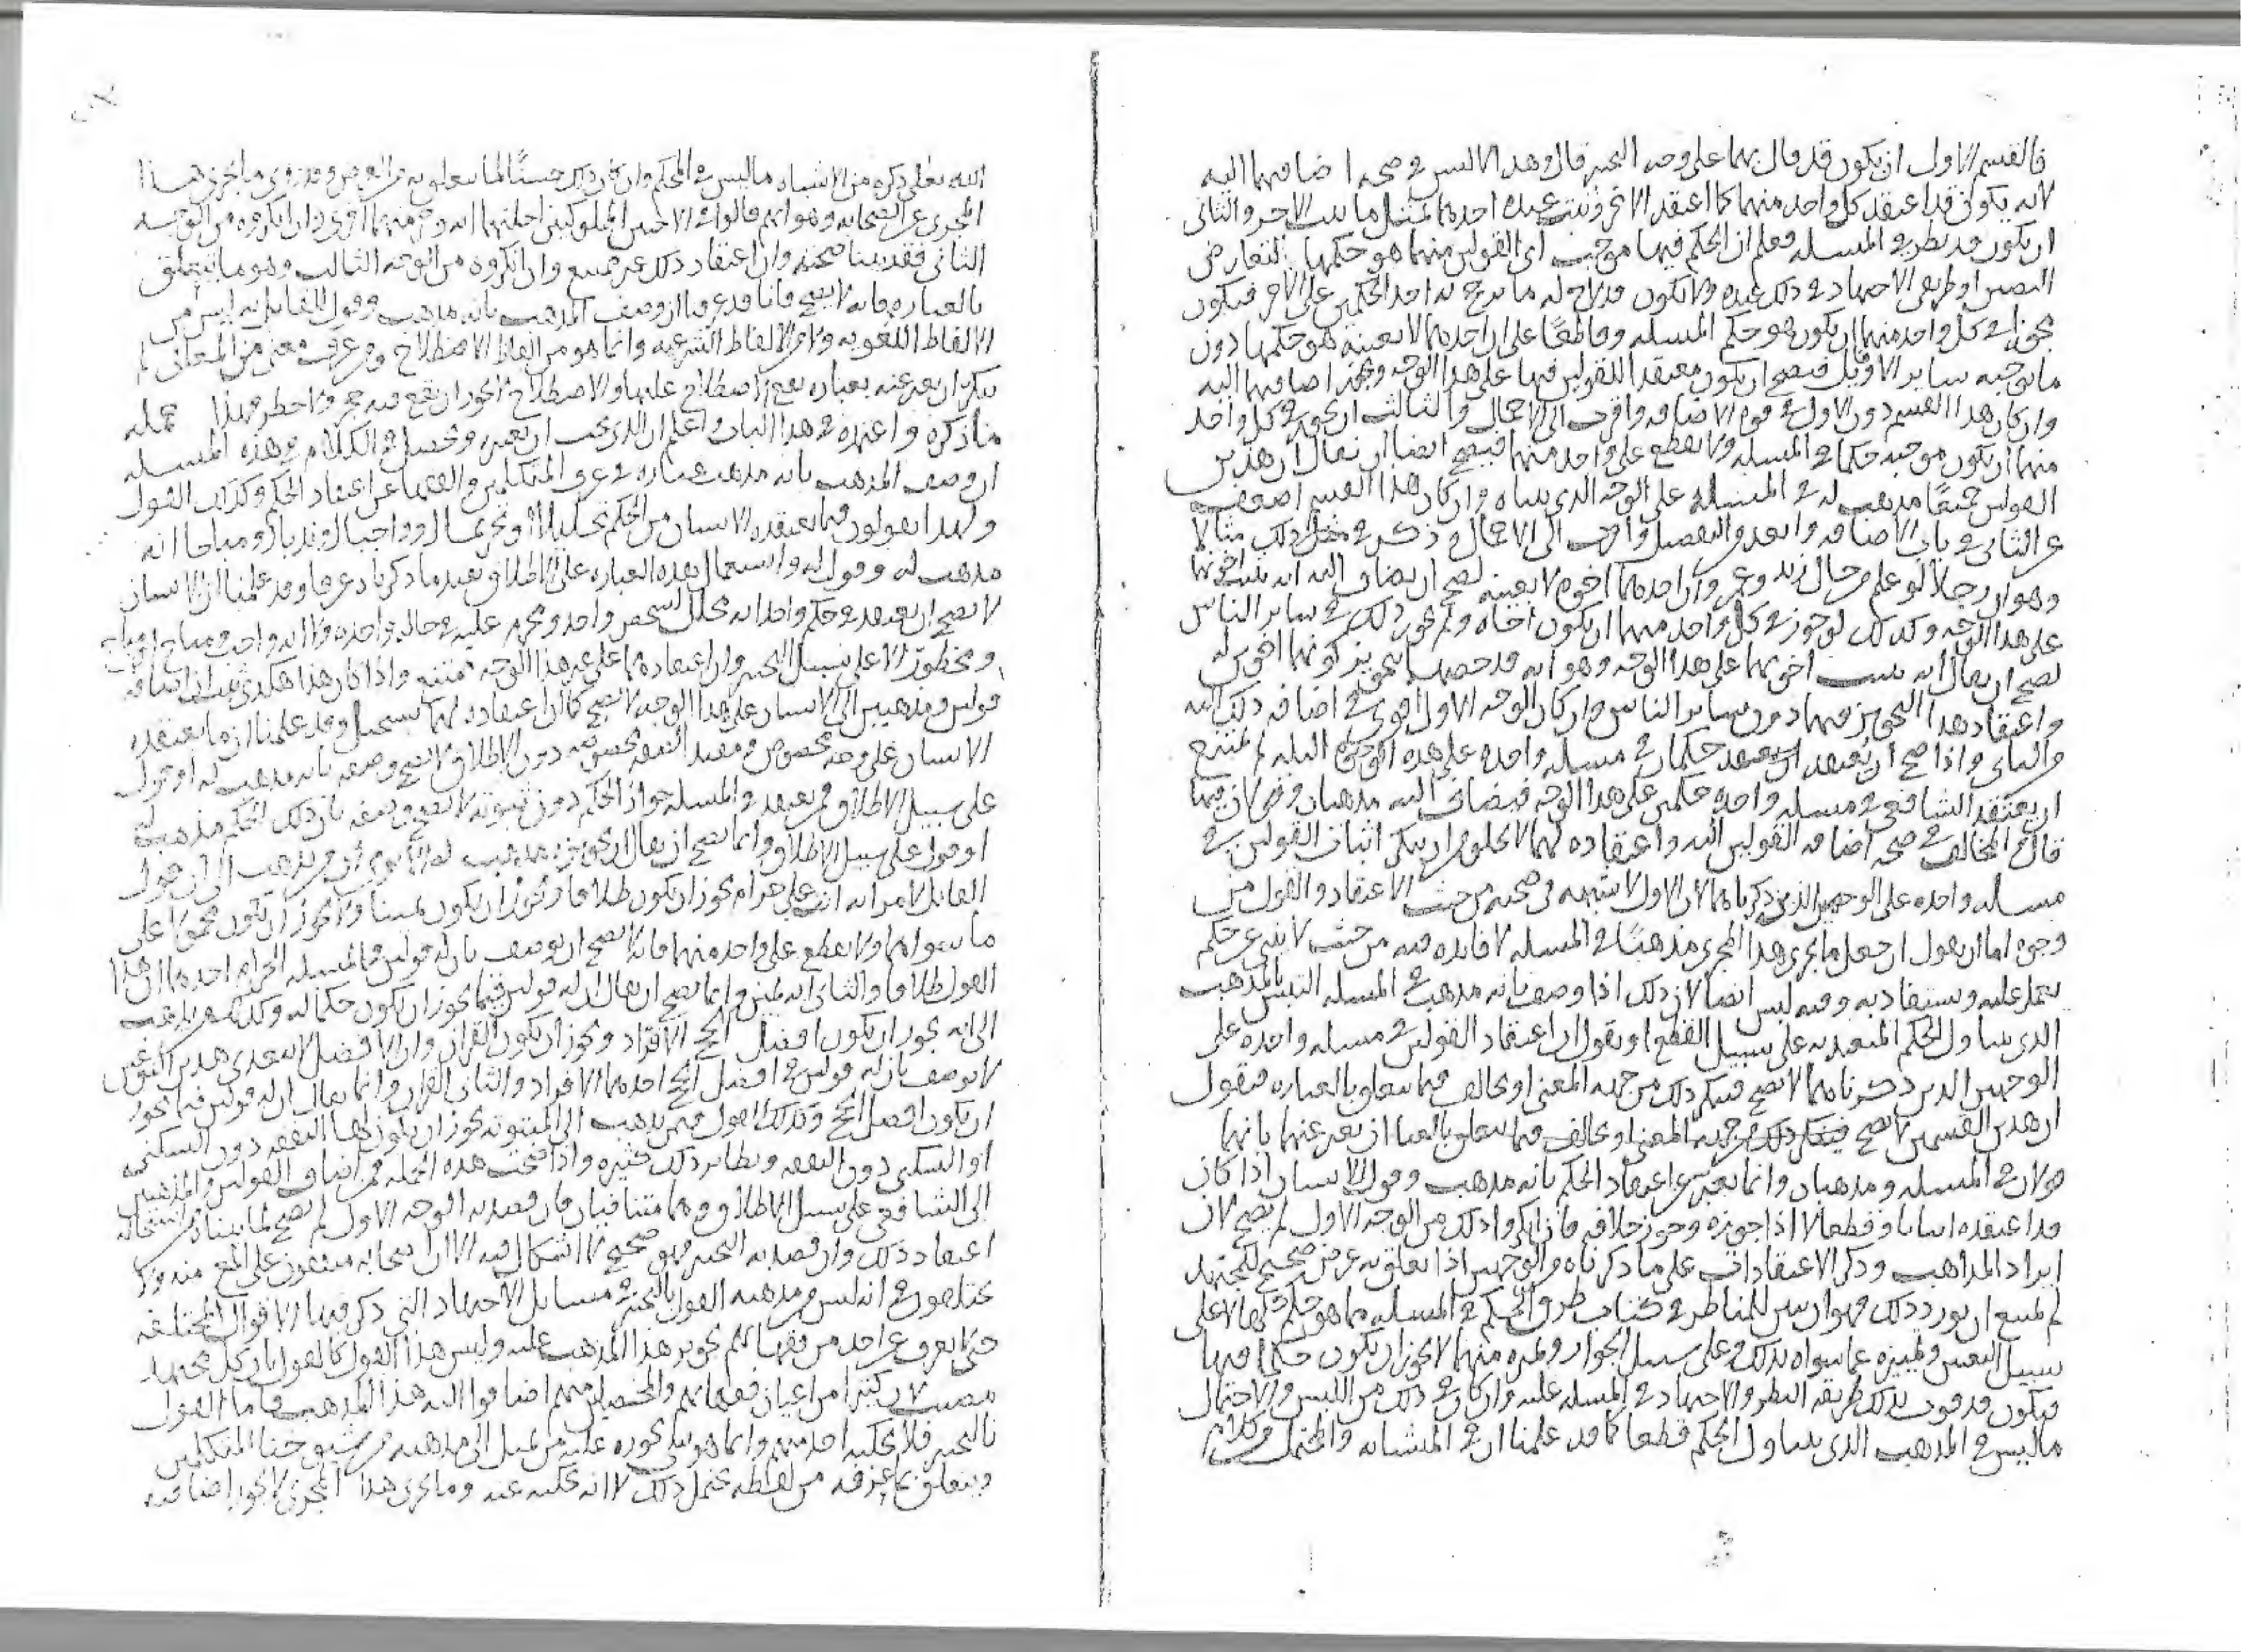 فالقسم الاول ان يكون قد قال بهما على وجه التخيير قال وهذا لا لبس في صحه اضافهما اليه
لانه يكون قد اعتقد كل واحد منهما كما اعتقد الاخر وثبت عنده احدهما بمثل ما ثبت الاخر والثاني
ان يكون قد نظر في المسله وعلم ان الحكم فيها موجب احد القولين منهما هو حكمها لتعارض
النصين او طريقي الاجتهاد في ذلك عنده ولا يكون قد لاح له ما يرجح به احد الحكمين على الاخر فيكون
يجوز في كل واحد منهما ان يكون هو حكم المسله وقاطعًا على ان احدهما لا بعينه هو حكمها دون
ما يوجبه ساير الاقاويل فيصح ان يكون معتقدا للقولين فيها على هذا الوجه ويجوز اضافهما اليه
وان كان هذا القسم دون الاول في قوه الاضافه واقرب الى الاحتمال والثالث ان يجوز في كل واحد
منهما ان يكون موجبه حكما في المسله ولا يقطع على واحد منهما فيصح ايضا ان يقال ان هذين
القولين جميعًا مذهب له في المسله على الوجه الذي بيناه وان كان هذا القسم اضعف
من الثاني في باب الاضافه وابعد في التفصيل واقرب الى الاحتمال وذكر في مثل ذلك مثالا
وهو ان رجلا لو علم من حال زيد وعمرو ان احدهما اخوه لا بعينه لصح ان يضاف اليه انه يثبت اخوتهما
على هذا الوجه وكذلك لو جوز في كل واحد منهما ان يكون اخاه ولم يجوز ذلك في ساير الناس
لصح ان يقال انه يثبت اخوتهما على هذا الوجه وهو انه قد خصهما بتجويز كونهما اخوين له
واعتقاد هذا التجويز فيهما دون ساير الناس وان كان الوجه الاول اقوى في اضافه ذلك اليه
والثاني واذا صح ان يعتقد حكمان في مسله واحده على هذه الوجوه الثلثه لم يمتنع
ان يعتقد الشافعي في مسله واحده حكمين على هذا الوجه فيضاف اليه مذهبان وقولان فيها
قال والمخالف في صحه اضافه القولين اليه واعتقاده لهما لا يخلو من ان ينكر اثبات القولين في
مسله واحده على الوجهين الذين ذكرناهما لان الاول لا شبهه في صحته من حيث الاعتقاد والقول من
وجوه اما ان يقول ان جعل ما يجري هذا المجرى مذهبًا في المسله لا فايده فيه من حيث لا ينبي عن حكم
يعمل عليه ويستفاد به وفيه لبس ايضا لان ذلك اذا وصف بانه مذهب في المسله التبس بالمذهب
الذي يتناول الحكم المتعبد به على سبيل القطع او يقول ان اعتقاد القولين في مسله واحده على
الوجهين الذين ذكرناهما لا يصح فينكر ذلك من جهه المعنى او يخالف فيما يتعلق بالعباره فيقول
ان هذين القسمين لا يصح فينكر ذلك من جهه المعنى او يخالف فيما يتعلق بالعبا ان يعبر عنهما بانهما
قولان في المسله ومذهبان وانما يعبر عن اعتقاد الحكم بانه مذهب وقول للانسان اذا كان
قد اعتقده اثباتا وقطعا لا اذا جوزه وجوز خلافه فان انكروا ذلك من الوجه الاول لم يصح لان
ايراد المذاهب وذكر الاعتقادات على ما ذكرناه من الوجهين اذا تعلق به غرض صحيح للمجتهد
لم يمتنع ان يورد ذلك وهو ان يبين للناظر في كتابه طرق الحكم في المسله مما هو حكم لها لا على
سبيل التعيين وتمييزه عما سواه بذلك وعلى سبيل الجواز وتميزه منهما لا يجوز ان يكون حكما فيها
فيكون قد قرب بذلك طريقه النظر والاجتهاد في المسله عليه وان كان في ذلك من اللبس والاحتمال
ما ليس في المذهب الذي يتناول الحكم قطعا كما قد علمنا ان في المتشابه والمحتمل من كلام
الله تعالى ذكره من الاشتباه ما ليس في المحكم وان كان ذلك حسنًا لما يتعلق به من الغرض وقد روى ما يجري هذا
المجرى عن الصحابه وهو انهم قالوا في الاختين المملوكتين احلتهما ايه وحرمتهما اخرى وان انكروه من الوجه
الثاني فقد بينا صحته وان اعتقاد ذلك غير ممتنع وان انكروه من الوجه الثالث وهو ما يتعلق
بالعباره فانه لا يصح فانا قد عرفنا ان وصف المذهب بانه مذهب وقول للقايل به ليس من
الالفاظ اللغويه ولا من الالفاظ الشرعيه وانما هو من الفاظ الاصطلاح ومن عرف معنى من المعاني لم
ينكر ان يعبر عنه بعباره يقع الاصطلاح عليها والاصطلاح لا يجوز ان يقع فيه حجر ولا حظر فهذا جمله
ما ذكره واعتمده في هذا الباب واعلم ان الذي يجب ان يعتبر ويحصل في الكلام في هذه المسله
ان وصف المذهب بانه مذهب عباره في عرف المتكلمين والفقها عن اعتقاد الحكم وكذلك القول
ولهذا يقولون فيما يعتقده الانسان من الحكم تحليلا او تحريما او واجبا او ندبا او مباحا انه
مذهب له وقول له واستعمال هذه العباره على الاطلاق تفيد ما ذكرناه عرفا وقد علمنا ان الانسان
لا يصح ان يعتقد في حكم واحد انه يحلل لشخص واحد ويحرم عليه في حاله واحده ولا انه واجب ومباح او مباح
ومحظور الا على سبيل التخيير وان اعتقادهما على غير هذا الوجه ممتنع واذا كان هذا هكذى ثبت ان اضافه
قولين ومذهبين الى الانسان على هذا الوجه لا يصح كما ان اعتقاده لهما يستحيل وقد علمنا ان ما يعتقده
الانسان على وجه مخصوص ومقيد دون الاطلاق لا يصح وصفه بانه مذهب له او قول
على سبيل الاطلاق فمن يعتقد في المسله جواز الحكم دون ثبوته لا يصح وصفه بان ذلك الحكم مذهب له
او قول على سبيل الاطلاق وانما يصح ان يقال ان تجويزه مذهب له الا ترى ان من يذهب الى ان قول
القايل لامراته انت علي حرام يجوز ان يكون طلاقا ويجوز ان يكون يمينا ولا يجوز ان يكون محمولا على
ما سواهما ولا يقطع على واحد منهما فانه لا يصح ان يوصف بان له قولين في مسله الحرام احدهما ان هذا
القول طلاقا والثاني انه يمين وانما يصح ان يقال ان له قولين فيما يجوز ان يكون حكما له وكذلك من يذهب
الى انه يجوز ان يكون افضل الحج الافراد ويجوز ان يكون القران وان الافضل لا يتعدى هذين النوعين
لا يوصف بان له قولين في افضل الحج احدهما الافراد والثاني القران وانما يقال ان له قولين فيما يجوز
ان يكون افضل الحج وكذلك القول فيمن يذهب الى ان المبتوته يجوز ان يكون لها النفقه دون السكنى
او السكنى دون النفقه ونظاير ذلك كثيره واذا صحت هذه الجمله فمن اضاف القولين والمذهبين
الى الشافعي على سبيل الاطلاق وهما متنافيان فان قصد به الوجه الاول لم يصح لما بيناه من استحاله
اعتقاد ذلك وان قصد به التخيير فهو صحيح لا اشكال فيه الا ان اصحابه متفقون على المنع منه ولا
يختلفون في انه ليس من مذهبه القول بالتخيير في مسايل الاجتهاد التي ذكر فيها الاقوال المختلفه
حتى لا يعرف عن احد من فقهايهم تجويز هذا المذهب عليه وليس هذا القول كالقول بان كل مجتهد
مصيب لان كثيرا من اعيان فقهايهم والمحصلين منهم اضافوا اليه هذا المذهب فاما القول
بالتخيير فلا يحكيه احد منهم وانما هو شي يجوزه عليه من يميل الى مذهبه من شيوخنا المتكلمين
ويتعلق بما عرفه من لفظه يحتمل ذلك لا انه يحكيه عنه وما يجري هذا المجرى لا يجوز اضافته